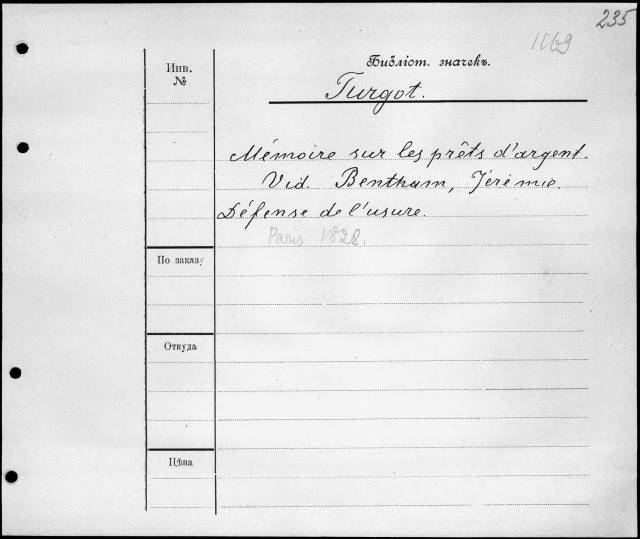 235
1169
Библіот. значекъ.
Инв.
№
Turgot.
Mémoire sur les prêts d'argent.
Vid. Bentham, Jérémie.
Défense de l'usure.
Paris 1828.
По заказу
Откуда
Цѣна